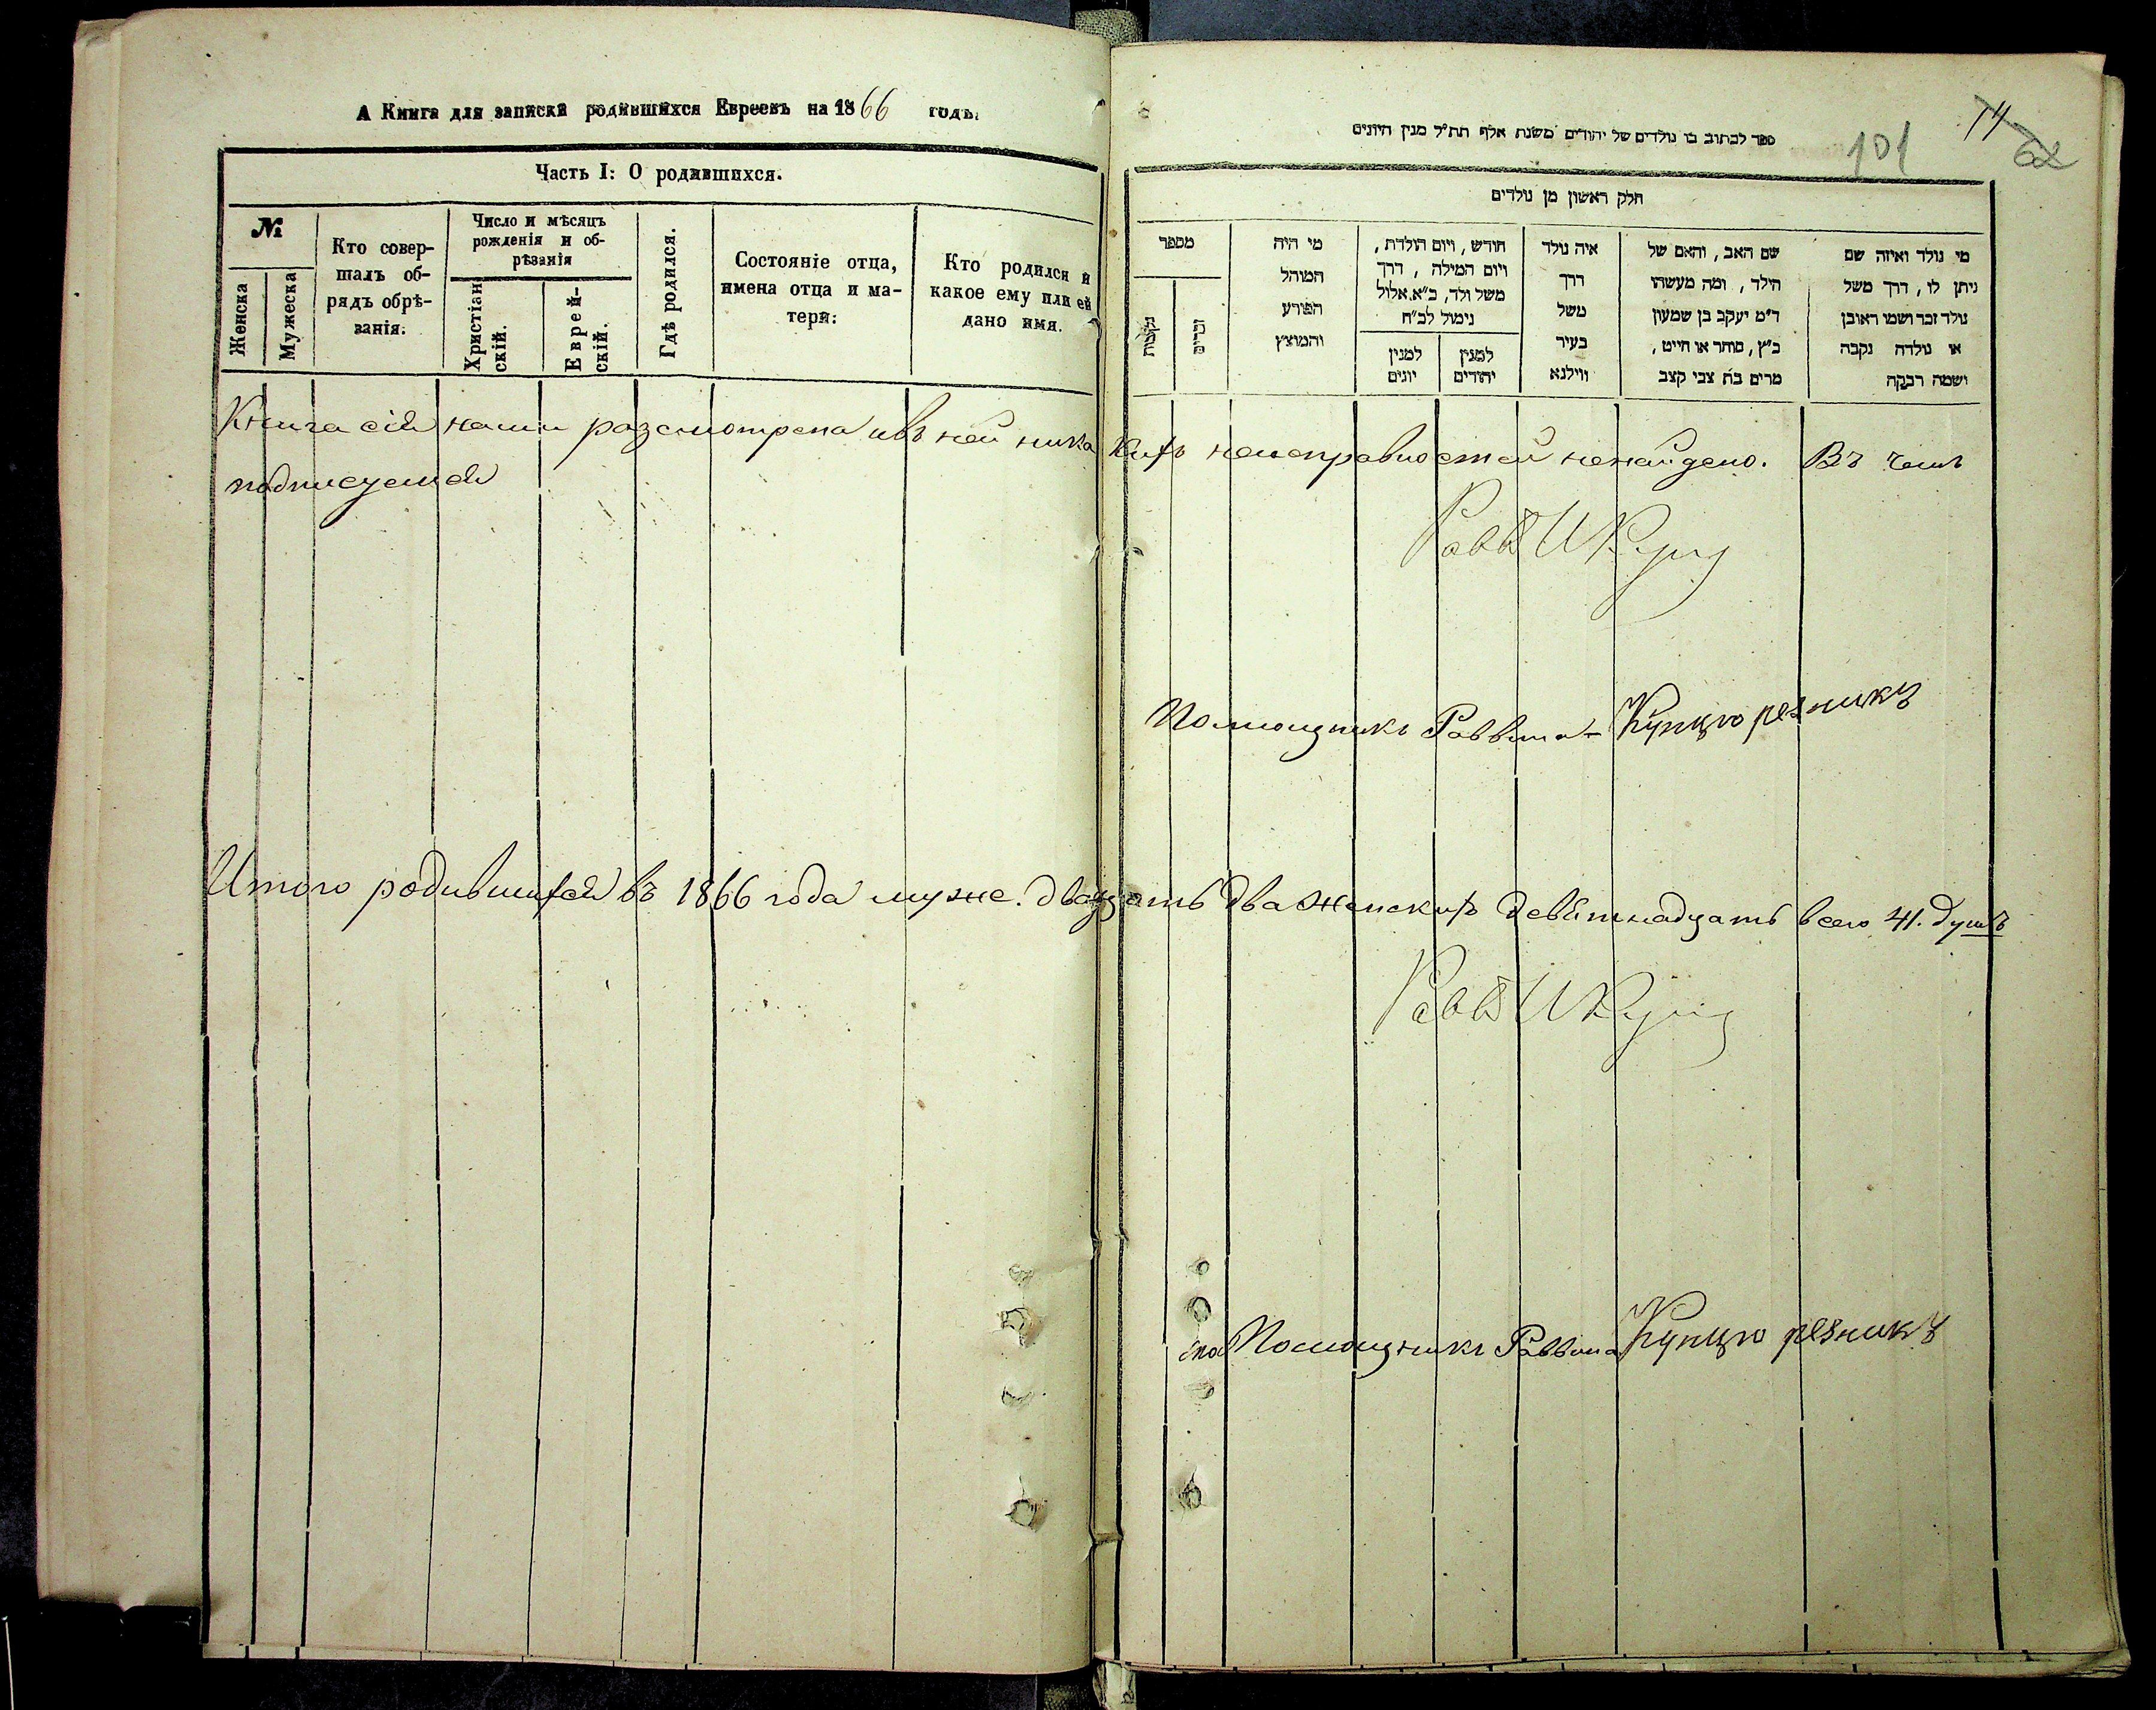 А Книга для записки родившихся Евреевъ на 1866 годъ.
Часть I: О родившихся.
№
Женска
Мужеска
Кто совер-
шалъ об-
рядъ обрѣ-
занія.
Число и мѣсяцъ
рожденія и об-
рѣзанія
Христіан
скій.
Еврей-
скій.
Гдѣ родился.
Состояніе отца,
имена отца и ма-
тери:
Кто родился и
какое ему или ей
дано имя.
ספר לכתוב בו נולדים של יהודים משנת אלף תת״ל מנין היונים
101
74
חלק ראשון מן נולדים
מספר
נקבות
זכרים
מי היה
המוהל
הפורע
והמוצץ
חודש, ויום הולדת,
ויום המילה, דרך
משל ולד, כ״א אלול
נימול לכ״ח
למנין
יונים
למנין
יהודים
איה נולד
דרך
משל
בעיר
ווילנא
שם האב, והאם של
הילד, ומה מעשהו
ד״מ יעקב בן שמעון
כ״ץ, סוחר או חייט,
מרים בת צבי קצב
מי נולד ואיזה שם
ניתן לו, דרך משל
נולד זכר ושמו ראובן
או נולדה נקבה
ושמה רבקה
Книга сія нами разсмотрена ивъ ней никакихъ неисправностей ненайдено. Въ чемъ
подписуемся
Равв
Помощникъ Раввина Купцо резникъ
Итого родившихся въ 1866 года муже. двадцать два женскихъ девятнадцать всего 41. душъ
Равв
Помощникъ Раввина Купцо резникъ